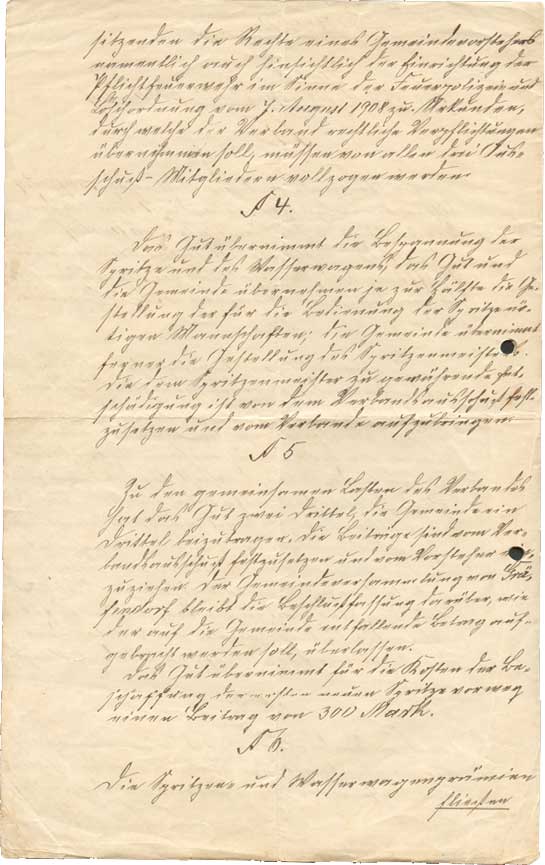 sitzenden die Rechte eines Gemeindevorstehers
namentlich auch hinsichtlich der Einrichtung der
Pflichtfeuerwehr im Sinne der Feuerpolizei und
Löschordnung vom 7. August 1908 zu. Urkunden,
durch welche der Verband rechtliche Verpflichtungen
übernehmen soll, müssen von allen drei Aus-
schuß-Mitgliedern vollzogen werden.
§ 4.
Das Gut übernimmt die Bespannung der
Spritze und des Wasserwagens, das Gut und
die Gemeinde übernehmen je zur Hälfte die Ge-
stellung der für die Bedienung der Spritze nö-
tigen Mannschaften; die Gemeinde übernimmt
ferner die Gestellung des Spritzenmeisters.
Die dem Spritzenmeister zu gewährende Ent-
schädigung ist von dem Verbandsausschuß fest-
zusetzen und vom Verbande aufzubringen.
§ 5
Zu den gemeinsamen Lasten des Verbandes
hat das Gut zwei Drittel, die Gemeinde ein
Drittel beizutragen. Die Beiträge sind vom Ver-
bandsausschuß festzusetzen und vom Vorsteher ein-
zuziehen. Der Gemeindeversammlung von
bleibt die Beschlußfassung darüber, wie
der auf die Gemeinde entfallende Betrag auf-
gebracht werden soll, überlassen.
Das Gut übernimmt für die Kosten der Be-
schaffung der ersten neuen Spritze vorweg
einen Beitrag von 300 Mark.
§ 6.
Die Spritzen- und Wasserwagenprämien
fließen